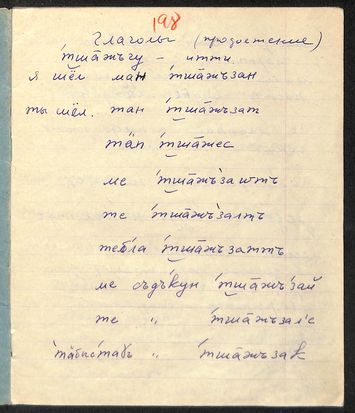 198
Глаголы (продолжение)
'тшāжъгу – итти.
я шёл ман 'тшāжъзан
ты шёл. тан 'тшāжъзат
тӓп 'тшāжес
ме 'тшāжъ'заттъ
те 'тшāжъ'залтъ
тебла 'тшāжъзаттъ
ме съдъ'кун 'тшāжъ'зай
те " 'тшāжъзал'е
'тӓбыс'табъ " 'тшāжъзак